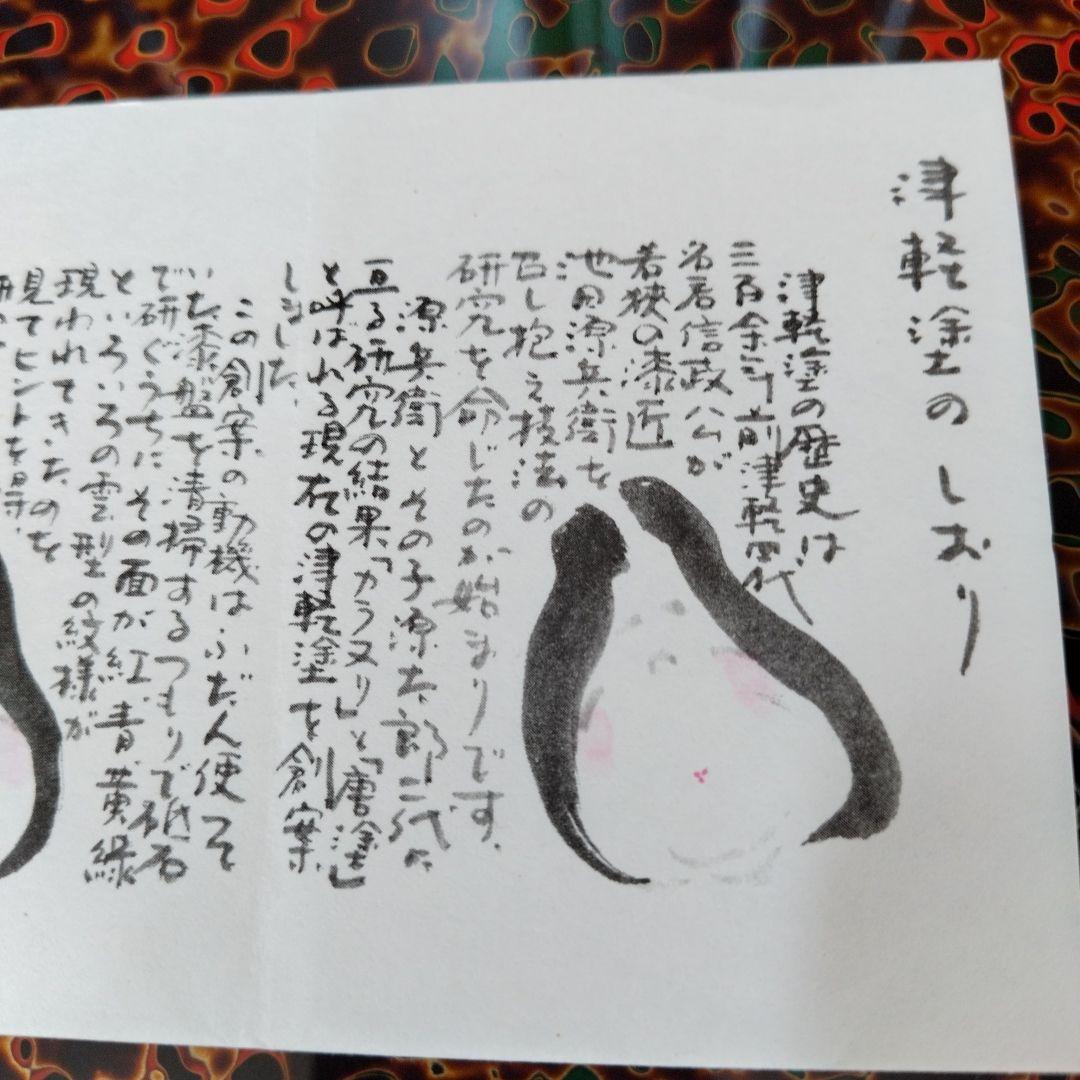 津軽塗のしおり
津軽塗の歴史は
三百余年前津軽四代
名君信政公が
若狭の漆匠
池田源兵衛を
召し抱え技法の
研究を命じたのが始まりです。
源兵衛とその子源太郎二代に
亘る研究の結果、「カラヌリ」と「唐塗」
と呼ばれる現在の津軽塗を創案
しました。
この創案の動機はふだん便って
いた漆盤を清掃するつもりで砥石
で研ぐうちにその面が紅、青、黄、緑
といろいろの雲型の紋様が
現われてきたのを
見てヒントを得、